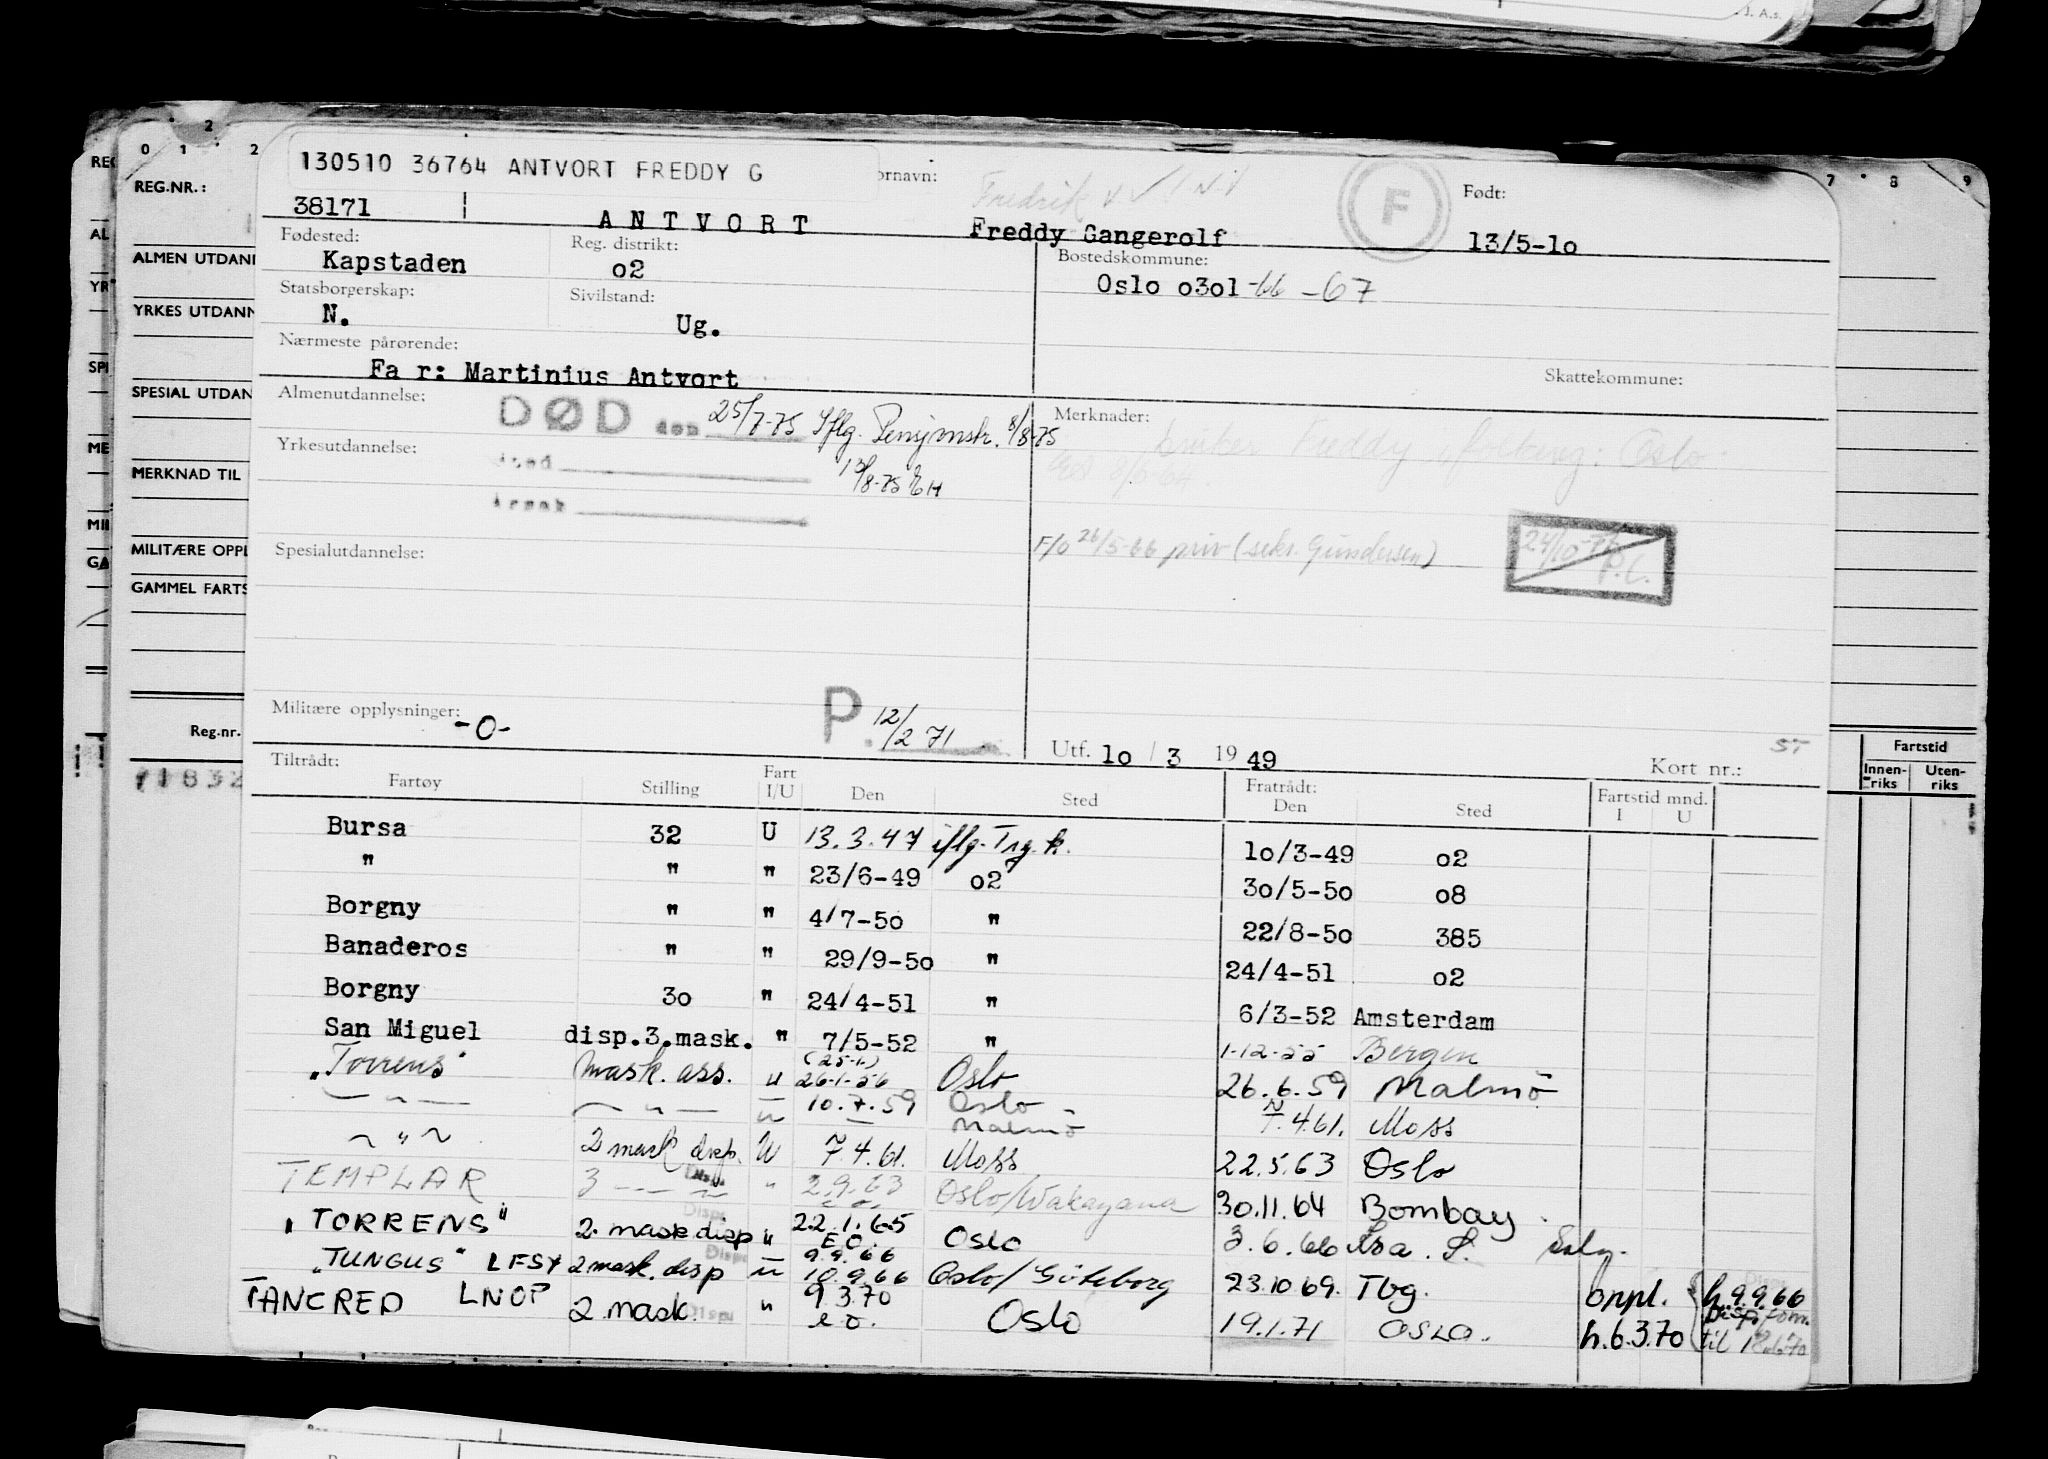 J. A.s.
0 1 2
7 8 9
REG.NR.:
ALMEN UTDAN
YRKES UTDANN
SPESIAL UTDAN
MERKNAD TIL
MILITÆRE OPPL
GAMMEL FARTS
Reg.nr.
71832
Fartstid
Innen-riks Uten-riks
130510 36764 ANTVORT FREDDY G
ornavn: Fredrik
Født:
F
38171 ANTVORT Freddy Gangerolf 13/5-1o
Fødested: Reg. distrikt: Bostedskommune:
Kapstaden o2 Oslo o3o1 -66 -67
Statsborgerskap: Sivilstand:
N. Ug.
Nærmeste pårørende:
Fa r: Martinius Antvort
Skattekommune:
Almenutdannelse: DØD den 25/7-75 Iflg. Pensjmstr. 8/8-75
Merknader: bruker Freddy folkereg: Oslo
Yrkesutdannelse: Sted 13/8-75 EH
Årsak
Spesialutdannelse:
F/O 26/5-66 priv (sekr. Gundersen)
24/10-77 P.L.
Militære opplysninger: -0-
P. 12/2 71
Utf. 1o / 3 19 49
ST
Kort nr.:
Tiltrådt: Fratrådt:
Fartøy Stilling Fart I/U Den Sted Den Sted Fartstid mnd. I U
Bursa 32 U 13.3.47 iflg. Trg.k. 1o/3-49 o2
" " " 23/6-49 o2 3o/5-5o o8
Borgny " " 4/7-5o " 22/8-5o 385
Banaderos " " 29/9-5o " 24/4-51 o2
Borgny 3o " 24/4-51 " 6/3-52 Amsterdam
San Miguel disp.3.mask. " 7/5-52 " 1-12-55 Bergen
"Torrens" Mask. ass. u (25-1) 26-1-56 Oslo 26.6.59 Malmö
— " — — " — " 10.7.59 Oslo Malmö 7.4.61. Moss
~ " ~ 2 mask disp. U 7.4.61. Moss 22.5.63 Oslo
TEMPLAR 3 — " — Disp. " 2.9.63 Oslo/Wakayama 30.11.64 Bombay
"TORRENS" 2. mask disp Disp. " 22.1.65 E.O. Oslo 3.6.66 Sra. S.
"TUNGUS" LFSY 2 mask. disp Disp. " 9.9.66 10.9.66 Oslo/Göteborg 23.10 69. Tbg. oppl. h.9.9.66
TANCRED LNOP 2. mask. Disp " 9.3.70 e.o. Oslo 19.1.71 OSLO. h.6.3.70 Disp. fom. til